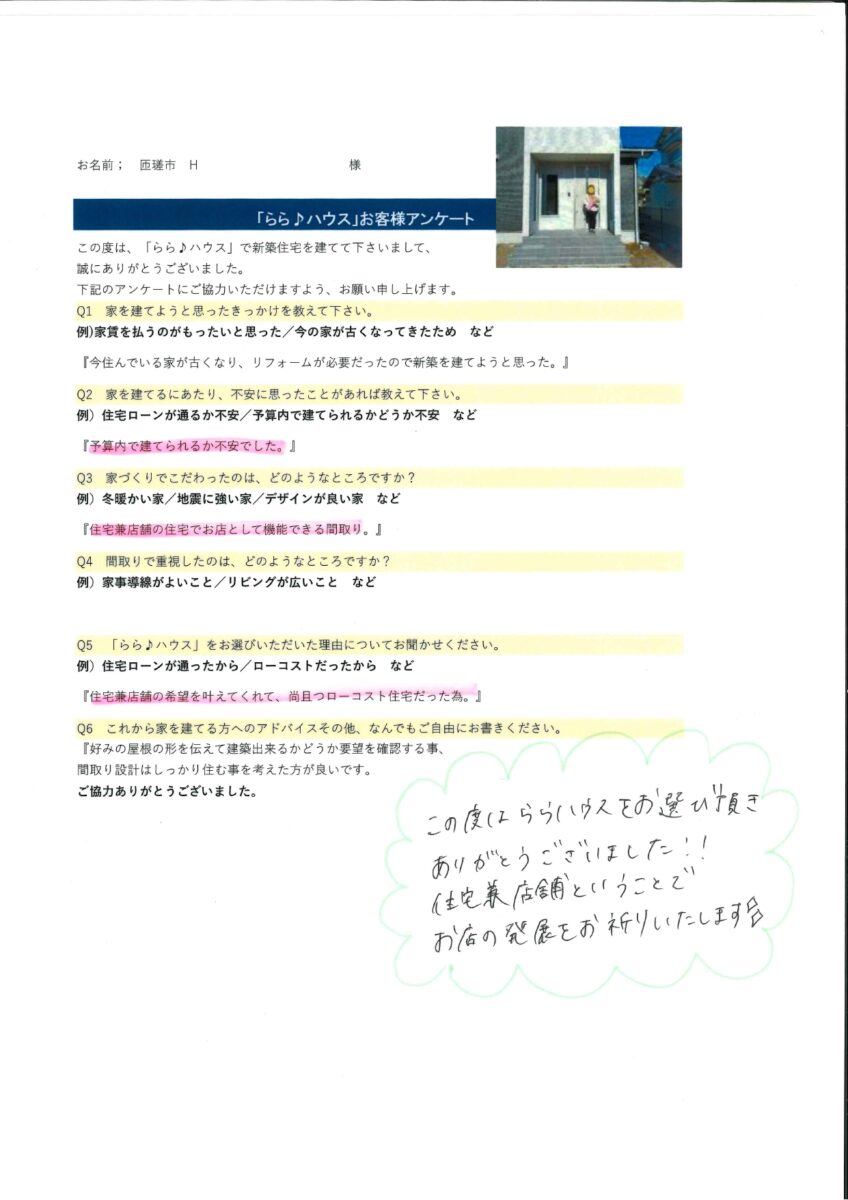 お名前； 匝瑳市 H 様
「らら♪ハウス」お客様アンケート
この度は、「らら♪ハウス」で新築住宅を建てて下さいまして、
誠にありがとうございました。
下記のアンケートにご協力いただけますよう、お願い申し上げます。
Q1 家を建てようと思ったきっかけを教えて下さい。
例)家賃を払うのがもったいと思った／今の家が古くなってきたため など
『今住んでいる家が古くなり、リフォームが必要だったので新築を建てようと思った。』
Q2 家を建てるにあたり、不安に思ったことがあれば教えて下さい。
例）住宅ローンが通るか不安／予算内で建てられるかどうか不安 など
『予算内で建てられるか不安でした。』
Q3 家づくりでこだわったのは、どのようなところですか？
例）冬暖かい家／地震に強い家／デザインが良い家 など
『住宅兼店舗の住宅でお店として機能できる間取り。』
Q4 間取りで重視したのは、どのようなところですか？
例）家事導線がよいこと／リビングが広いこと など
Q5 「らら♪ハウス」をお選びいただいた理由についてお聞かせください。
例）住宅ローンが通ったから／ローコストだったから など
『住宅兼店舗の希望を叶えてくれて、尚且つローコスト住宅だった為。』
Q6 これから家を建てる方へのアドバイスその他、なんでもご自由にお書きください。
『好みの屋根の形を伝えて建築出来るかどうか要望を確認する事、
間取り設計はしっかり住む事を考えた方が良いです。
ご協力ありがとうございました。
この度はららハウスをお選び頂き
ありがとうございました!!
住宅兼店舗ということで
お店の発展をお祈りいたします